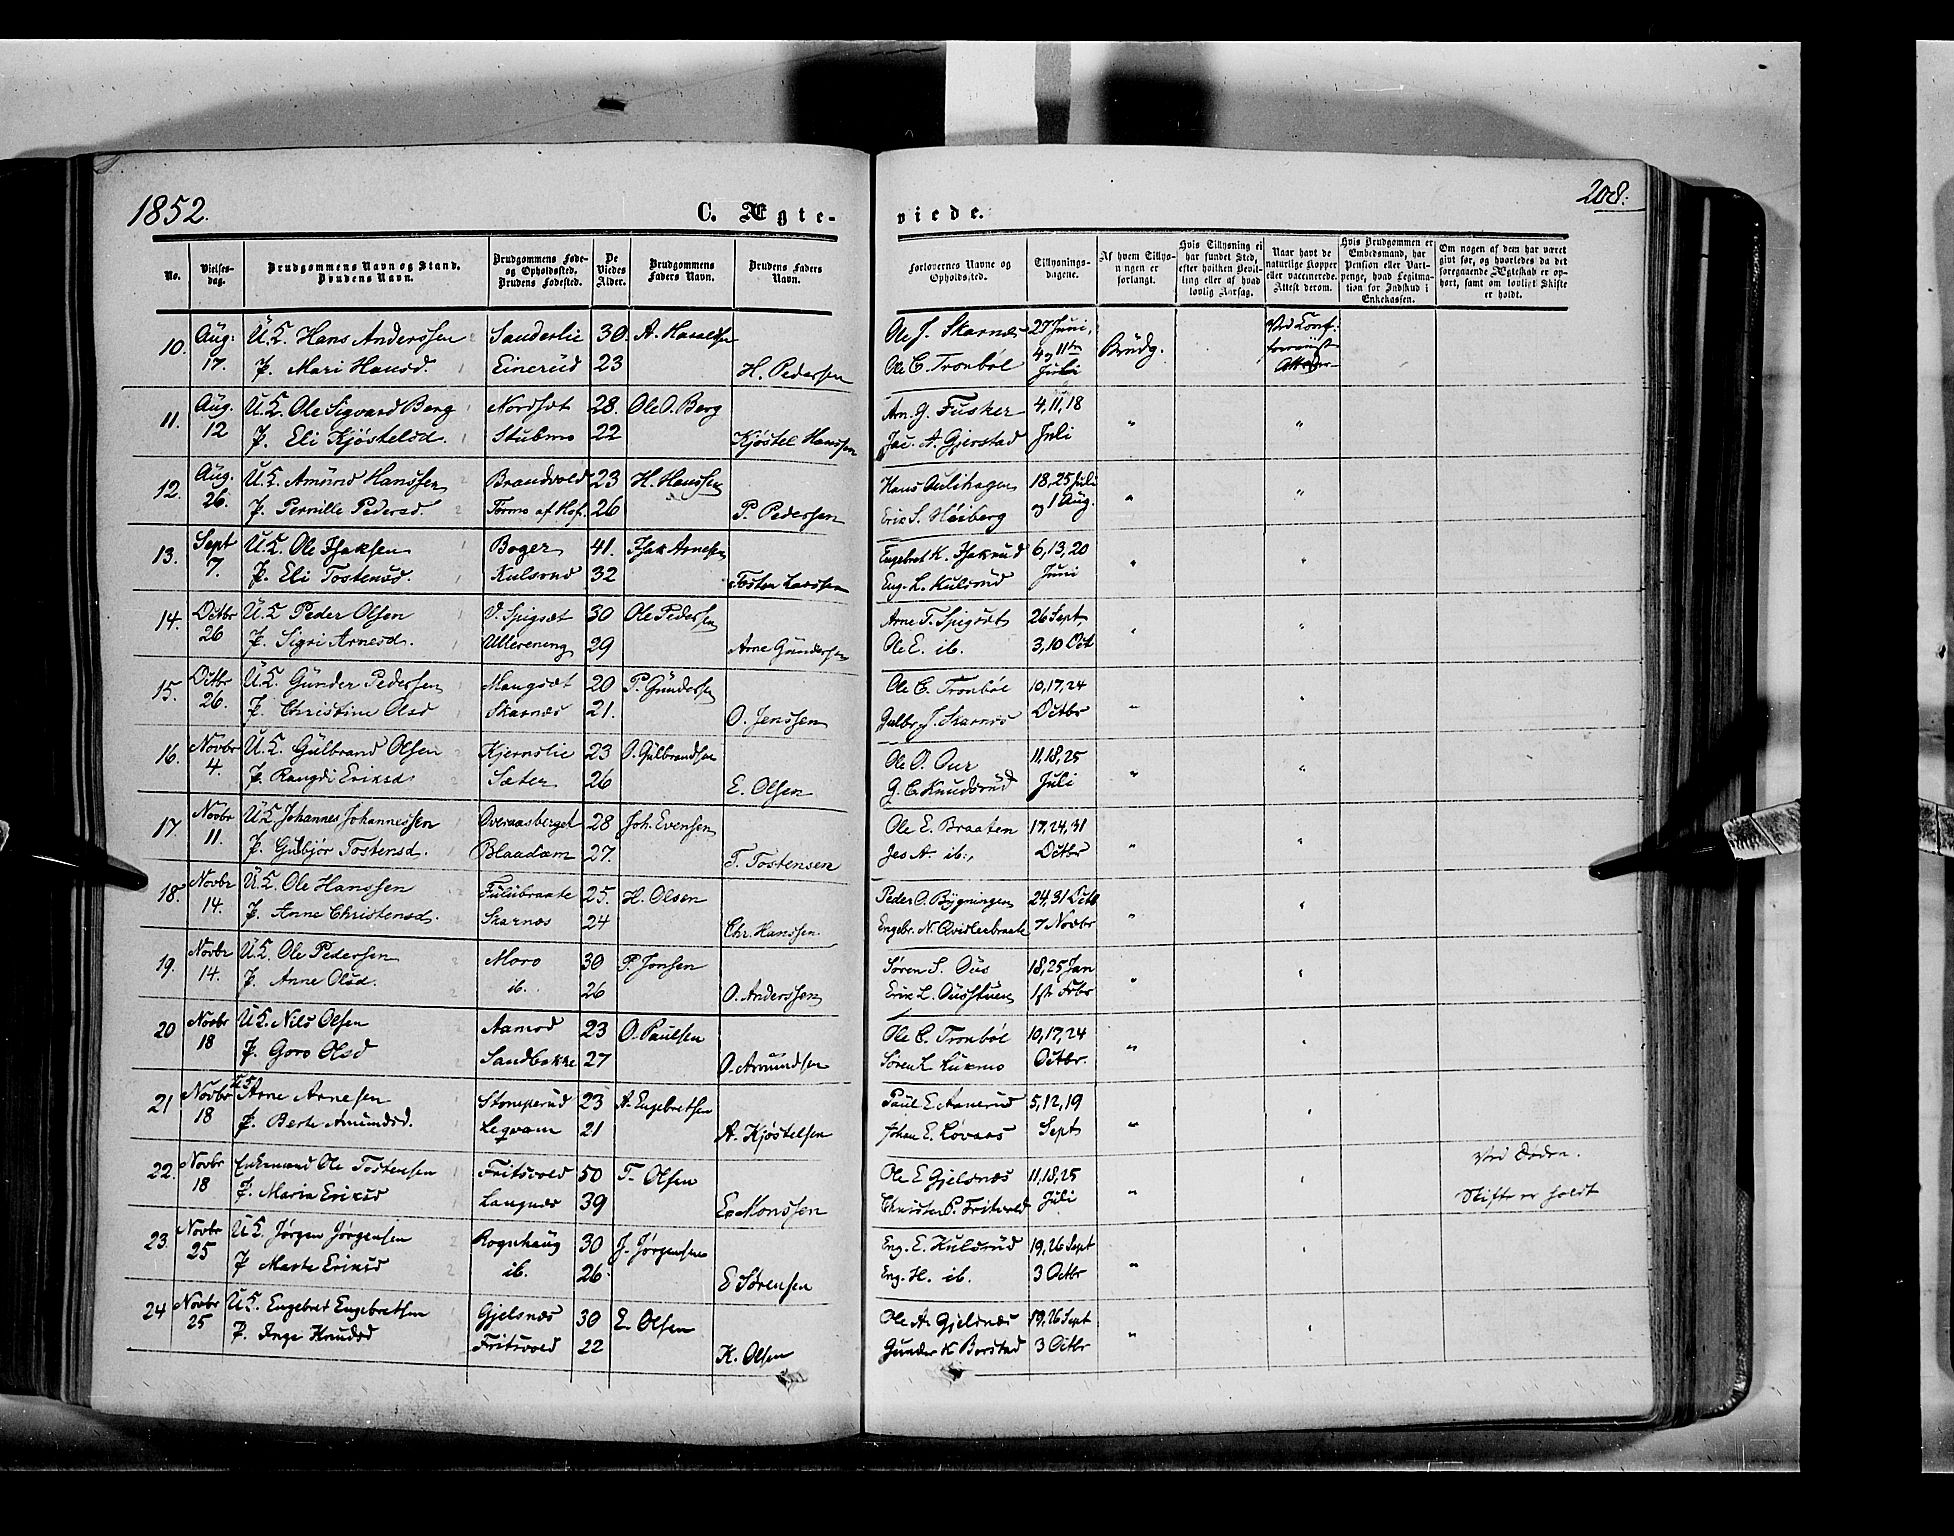 1852.
C. Ægte-
viede.
208.
No.
Vielses-
dag.
Brudgommens Navn og Stand.
Brudens Navn.
Brudgommens Føde-
og Opholdssted.
Brudens Fødested.
De
Viedes
Alder.
Brudgommens
Faders Navn.
Brudens Faders
Navn.
Forlovernes Navne og
Opholdssted.
Tillysnings-
dagene.
Af hvem Tillys-
ningen er
forlangt.
Hvis Tillysning ei
har fundet Sted,
efter hvilken Bevil-
ling eller af hvad
lovlig Aarsag.
Naar havt de
naturlige Kopper
eller vaccinerede.
Attest derom.
Hvis Brudgommen er
Embedsmand, har
Pension eller Vart-
penge, hvad Legitima-
tion for Indskud i
Enkekassen.
Om nogen af dem har været
givt før, og hvorledes da det
foregaaende Ægteskab er op-
hørt, samt om lovligt Skifte
er holdt.
10. Aug: U.K. Hans Anderssen Sanderlie 30. A. Haraldsen Ole J. Skarnæs 27 Juni,
17. P. Mari Hansd. Einerud 23 H. Pedersen Ole C. Tronbøl 4 og 11te Juli Brudg.
11. Aug. U.K. Ole Sigvard Berg Nordsæt 28. Ole O. Berg Arn. G. Fusker 4, 11, 18
12 P. Eli Kjøstelsd. Stubmo 22 Kjøstel Hanssen Jac. A. Gjerstad Juli " "
12. Aug. U.K. Amund Hanssen Brandvold 23 H. Hanssen Hans Aulihagen 18, 25 Juli
26. P. Pernille Pedersd. Tormo af Hof. 26 P. Pedersen Erik S. Høiberg og 1 Aug. " "
13. Sept U.K. Ole Isaksen Boger 41. Isak Arnesen Engebret K. Isakrud 6, 13, 20
7. P. Eli Tostensd. Kulsrud 32 Tosten Larssen Eng. L. Kulsrud Juni " "
14. Octbr U.K. Peder Olsen V. Spigsæt 30 Ole Pedersen Arne T. Spigsæt 26 Sept,
26 P. Sigri Arnesd. Ullereneng 29 Arne Gundersen Ole E. ib. 3, 10 Oct " "
15. Octbr U.K. Gunder Pedersen Mangsæt 20 P. Gundersen Ole C. Tronbøl 10, 17, 24
26. P. Christine Olsd Skarnæs 21. O. Jenssen Gulbr. J. Skarnæs Octbr " "
16. Novbr U.K. Gulbrand Olsen Kjernslie 23 O. Gulbrandsen Ole O. Our 11, 18, 25
4. P. Rangdi Eriksd. Sæter 26 E. Olsen G. C. Knudsrud Juli " "
17. Novbr U.K. Johannes Johannessen Overaasberget 28 Joh. Evensen Ole E. Braaten 17, 24, 31
11. P. Gulbjør Tostensd. Blaadam 27. T. Tostensen Jes A. ib. Octbr " "
18. Novbr U.K. Ole Hanssen Fulubraate 25. H. Olsen Peder O. Bygningen 24, 31 Octb
14. P. Anne Christensd. Skarnæs 24 Chr. Hanssen. Engebr. N. Qvidlerbraate 7 Novbr " "
19. Novbr U.K. Ole Pedersen Moro 30 P. Jonsen Søren S. Ous 18, 25 Jan
14. P. Anne Olsd. ib. 26 O. Anderssen Erik L. Ousstuen 1ste Febr " "
20 Novbr U.K. Nils Olsen Aamod 23 O. Paulsen Ole C. Tronbøl 10, 17, 24
18 P. Goro Olsd Sandbakke 27 O. Amundsen Søren L Kukmo Octbr. " "
21 Novbr U.K. Arne Arnesen Stomperud 23 A. Engebretsen Paul E. Aanerud 5, 12, 19
18 P. Berte Amundsd. Legvam 21 A. Kjøstelsen Johan E. Løvaas Sept " "
22. Novbr Enkemand Ole Tostensen Fritsvold 50 T. Olsen Ole E Gjelsnæs 11, 18, 25 Ved Døden.
18 P. Maria Eriksd Langnæs 39 E. Monssen Christen P. Fritsvold Juli " " Skifte er holdt
23. Novbr U.K. Jørgen Jørgensen Rognhaug 30 J. Jørgensen Eng. E. Kulsrud 19, 26 Sept
25 P Marte Eriksd ib. 26. E Sørensen Eng. H. ib. 3 Octbr " "
24 Novbr U.K. Engebret Engebretsen Gjelsnæs 30 E. Olsen Ole A. Gjelsnæs 19, 26 Sept
25 P. Inge Knudsd Fritsvold 22 K. Olsen Gunder K Borstad 3 Octbr " "